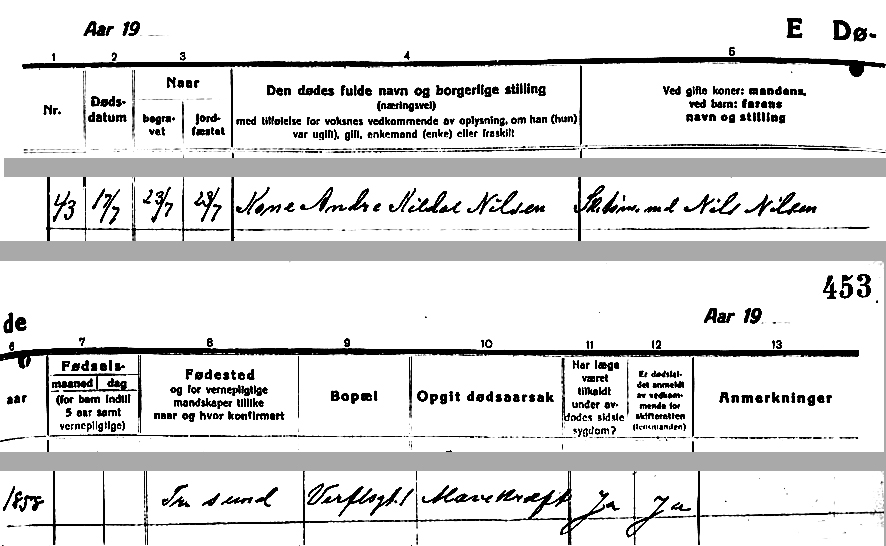 Aar 19
E Dø-
1 2 3 4 5
Nr.
Døds-
datum
Naar
begra-
vet
jord-
fæstet
Den dødes fulde navn og borgerlige stilling
(næringsvei)
med tilføielse for voksnes vedkommende av oplysning, om han (hun)
var ugift, gift, enkemand (enke) eller fraskilt
Ved gifte koner: mandens,
ved barn: farens
navn og stilling
43 17/7 23/7 23/7 Kone Andre Mildal Nilsen Nils Nilsen
453
de
Aar 19
6 7 8 9 10 11 12 13
aar
Fødsels-
maaned dag
(for barn indtil
5 aar samt
vernepligtige)
Fødested
og for vernepligtige
mandskaper tillike
naar og hvor konfirmert
Bopæl
Opgit dødsaarsak
Har læge
været
tilkaldt
under av-
dødes sidste
sygdom?
Er dødsfal-
det anmeldt
av vedkom-
mende for
skifteretten
(lensmanden)
Anmerkninger
1858 Tr sund Verftsgt. 1 Mavekræft Ja Ja